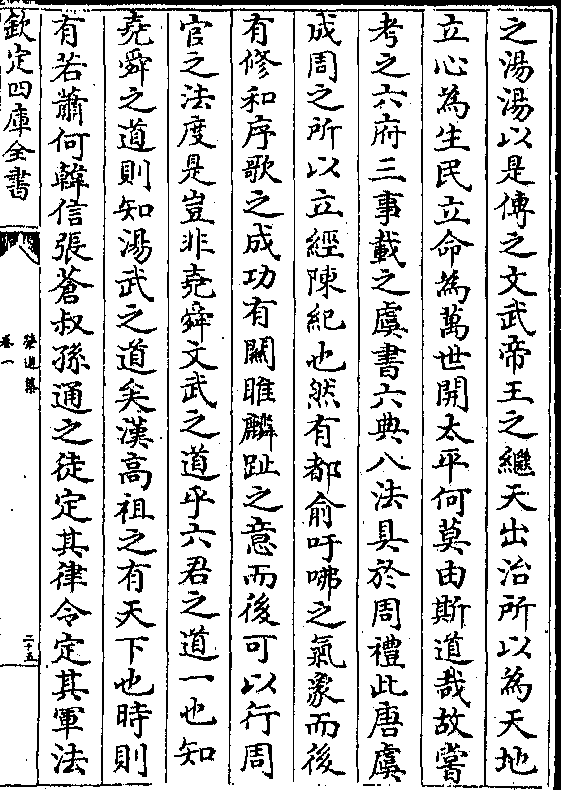 之湯湯以是傳之文武帝王之繼天出治所以為天地
立心為生民立命為萬世開太平何莫由斯道哉故嘗
考之六府三事載之虞書六典八法具於周禮此唐虞
成周之所以立經陳紀也然有都俞吁咈之氣象而後
有修和序歌之成功有關雎麟趾之意而後可以行周
官之法度是豈非堯舜文武之道乎六君之道一也知
堯舜之道則知湯武之道矣漢高祖之有天下也時則
有若蕭何韓信張蒼叔孫通之徒定其律令定其軍法
欽定四庫全書
卷一
二十五